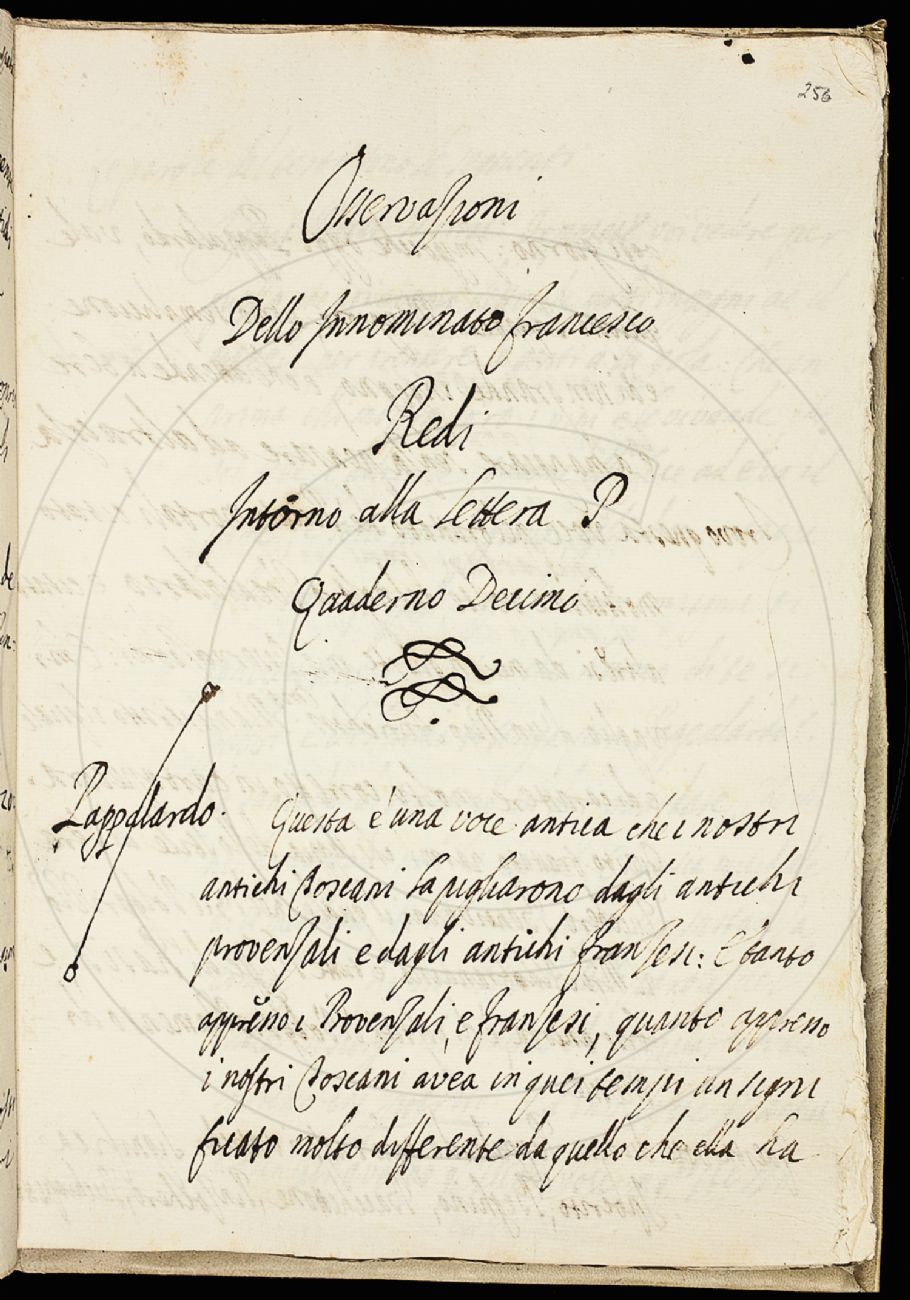 256
Osservazioni
Dello Innominato Francesco
Redi
Intorno alla Lettera P
Quaderno Decimo
Pappalardo. Questa è una voce antica che i nostri
antichi Toscani la pigliarono dagli antichi
provenzali e dagli antichi franzesi: E tanto
apprĕno i Provenzali, e franzesi, quanto appreno
i nostri Toscani avea in quei tempi un signi
ficato molto differente da quello che ella ha